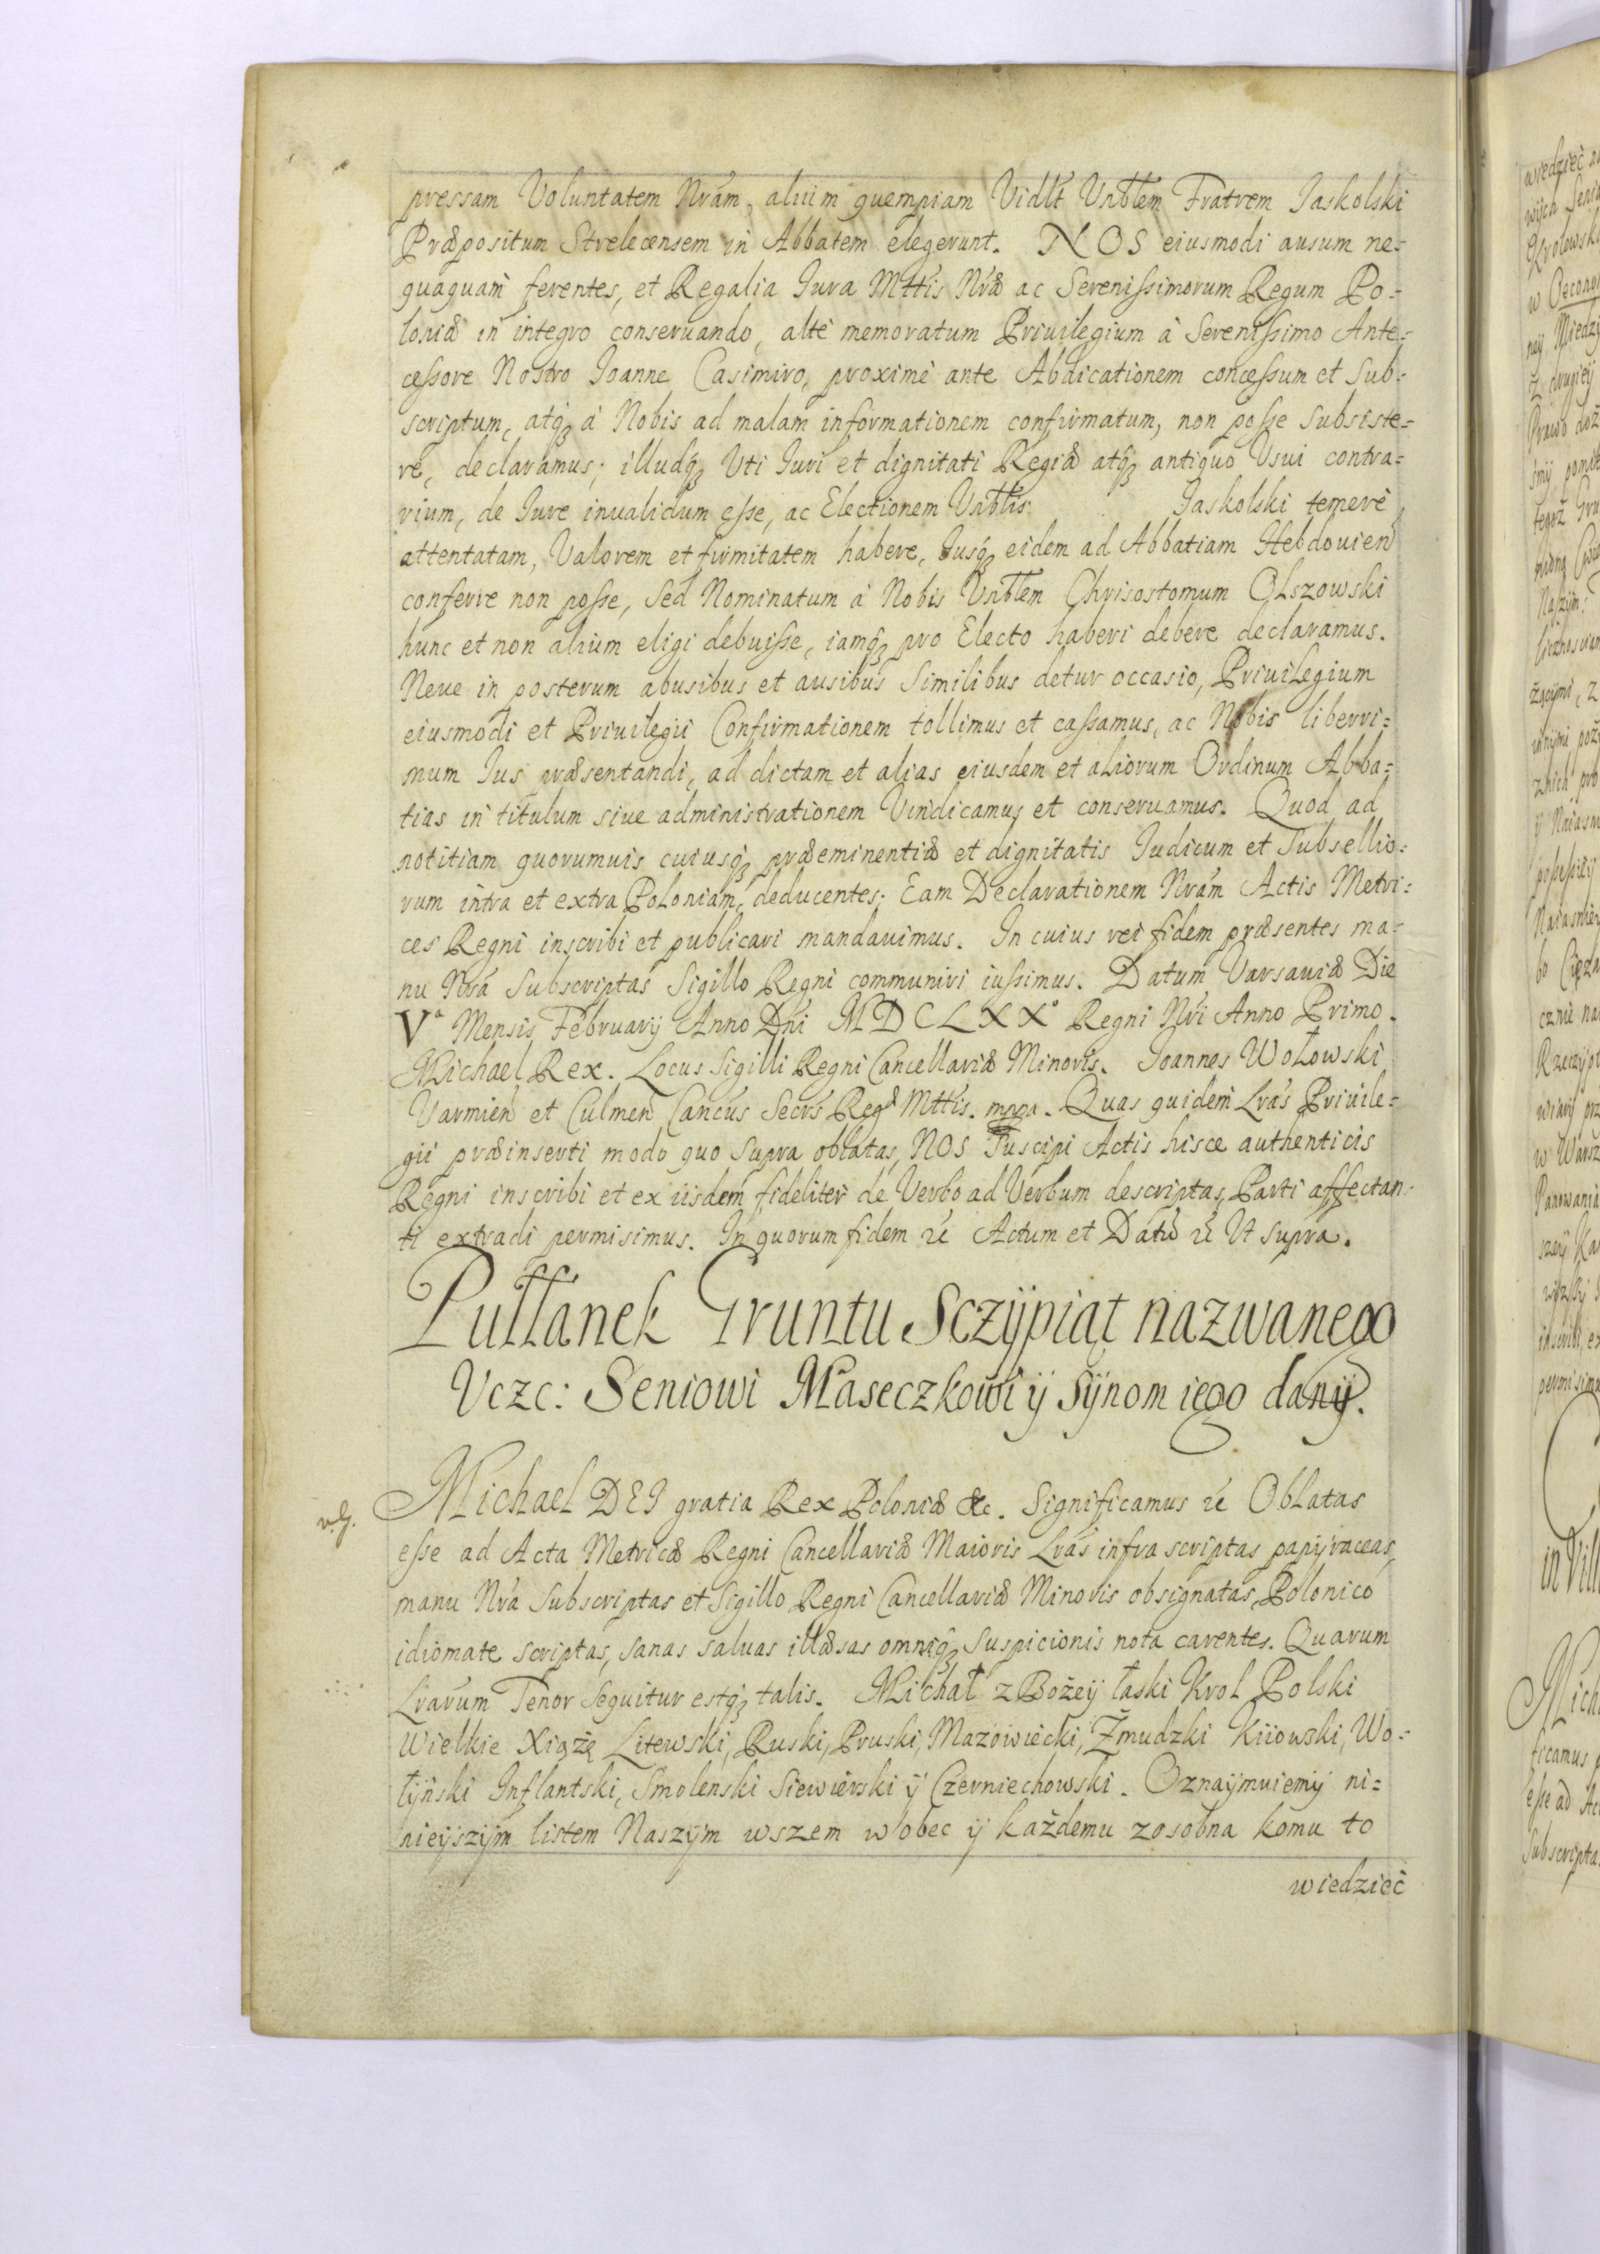 pressam Voluntatem Nrám, alium quempiam Vidlt Vnblem Fratrem Jaskolski
Præpositum Strelecensem in Abbatem elegerunt. NOS eiusmodi ausum ne=
quaquam ferentes, et Regalia Jura Mttis Nræ ac Serenissimorum Regum Po=
loniæ in integro conseruando, altè memoratum Priuilegium à Serenissimo Ante=
cessore Nostro Joanne Casimiro, proximè ante Abdicationem concessum et Sub=
scriptum, atq₃ à Nobis ad malam informationem confirmatum, non posse subsiste=
re, declaramus; illudq₃ Vti Juri et dignitati Regiæ atq₃ antiquo Vsui contra=
rium, de Jure inualidum esse, ac Electionem Vnblis Jaskolski temerè
attentatam, Valorem et firmitatem habere, Jusq₃ eidem ad Abbatiam Hebdouien
conferre non posse, Sed Nominatum à Nobis Vnblem Chrisostomum Olszowski
hunc et non alium eligi debuisse, iamq₃ pro Electo haberi debere declaramus.
Neue in posterum abusibus et ausibus Similibus detur occasio, Priuilegium
eiusmodi et Priuilegii Confirmationem tollimus et cassamus, ac Nobis liberri=
mum Jus præsentandi, ad dictam et alias eiusdem et aliorum Ordinum Abba=
tias in titulum siue administrationem Vindicamus et conseruamus. Quod ad
notitiam quorumuis cuiusq₃ præeminentiæ et dignitatis Judicum et Subsellio=
rum intra et extra Poloniam, deducentes; Eam Declarationem Nrám Actis Metri=
ces Regni inscribi et publicari mandauimus. In cuius rei fidem præsentes ma=
nu Nrá Subscriptas Sigillo Regni communiri iussimus. Datum Varsauiæ Die
Vª Mensis February Anno Dni MDCLXXº Regni Nri Anno Primo.
Michael Rex. Locus Sigilli Regni Cancellariæ Minoris. Joannes Wołowski
Varmien et Culmen Cancus Secrs Regæ Mttis. mppa. Quas quidem Lrás Priuile=
gii præinserti modo quo Supra oblatas, NOS Suscipi Actis hisce authenticis
Regni inscribi et ex iisdem fideliter de Verbo ad Verbum descriptas, Parti affectan=
ti extradi permisimus. In quorum fidem &c Actum et Datū &c Vt supra.
Pułłanek Gruntu Sczypiąt nazwanego
Vczc: Seniowi Maseczkowi ÿ Sÿnom iego danÿ.
Michael DEI gratia Rex Poloniæ &c. Significamus &c Oblatas
esse ad Acta Metricæ Regni Cancellariæ Maioris Lrás infra scriptas papÿraceas,
manu Nrá Subscriptas et Sigillo Regni Cancellariæ Minoris obsignatas, Polonico
idiomate scriptas, sanas saluas illæsas omniq₃ Suspicionis nota carentes. Quarum
Lrarum Tenor Sequitur estq₃ talis. Michał z Bożeÿ łaski Krol Polski
Wielkie Xiążę Litewski, Ruski, Pruski, Mazowiecki, Żmudzki Kiiowski, Wo=
łÿnski Inflantski, Smolenski Siewierski ÿ Czerniechowski. Oznaÿmuiemÿ ni=
nieÿszÿm listem Naszÿm wszem wobec ÿ każdemu zosobna komu to
wiedzieć